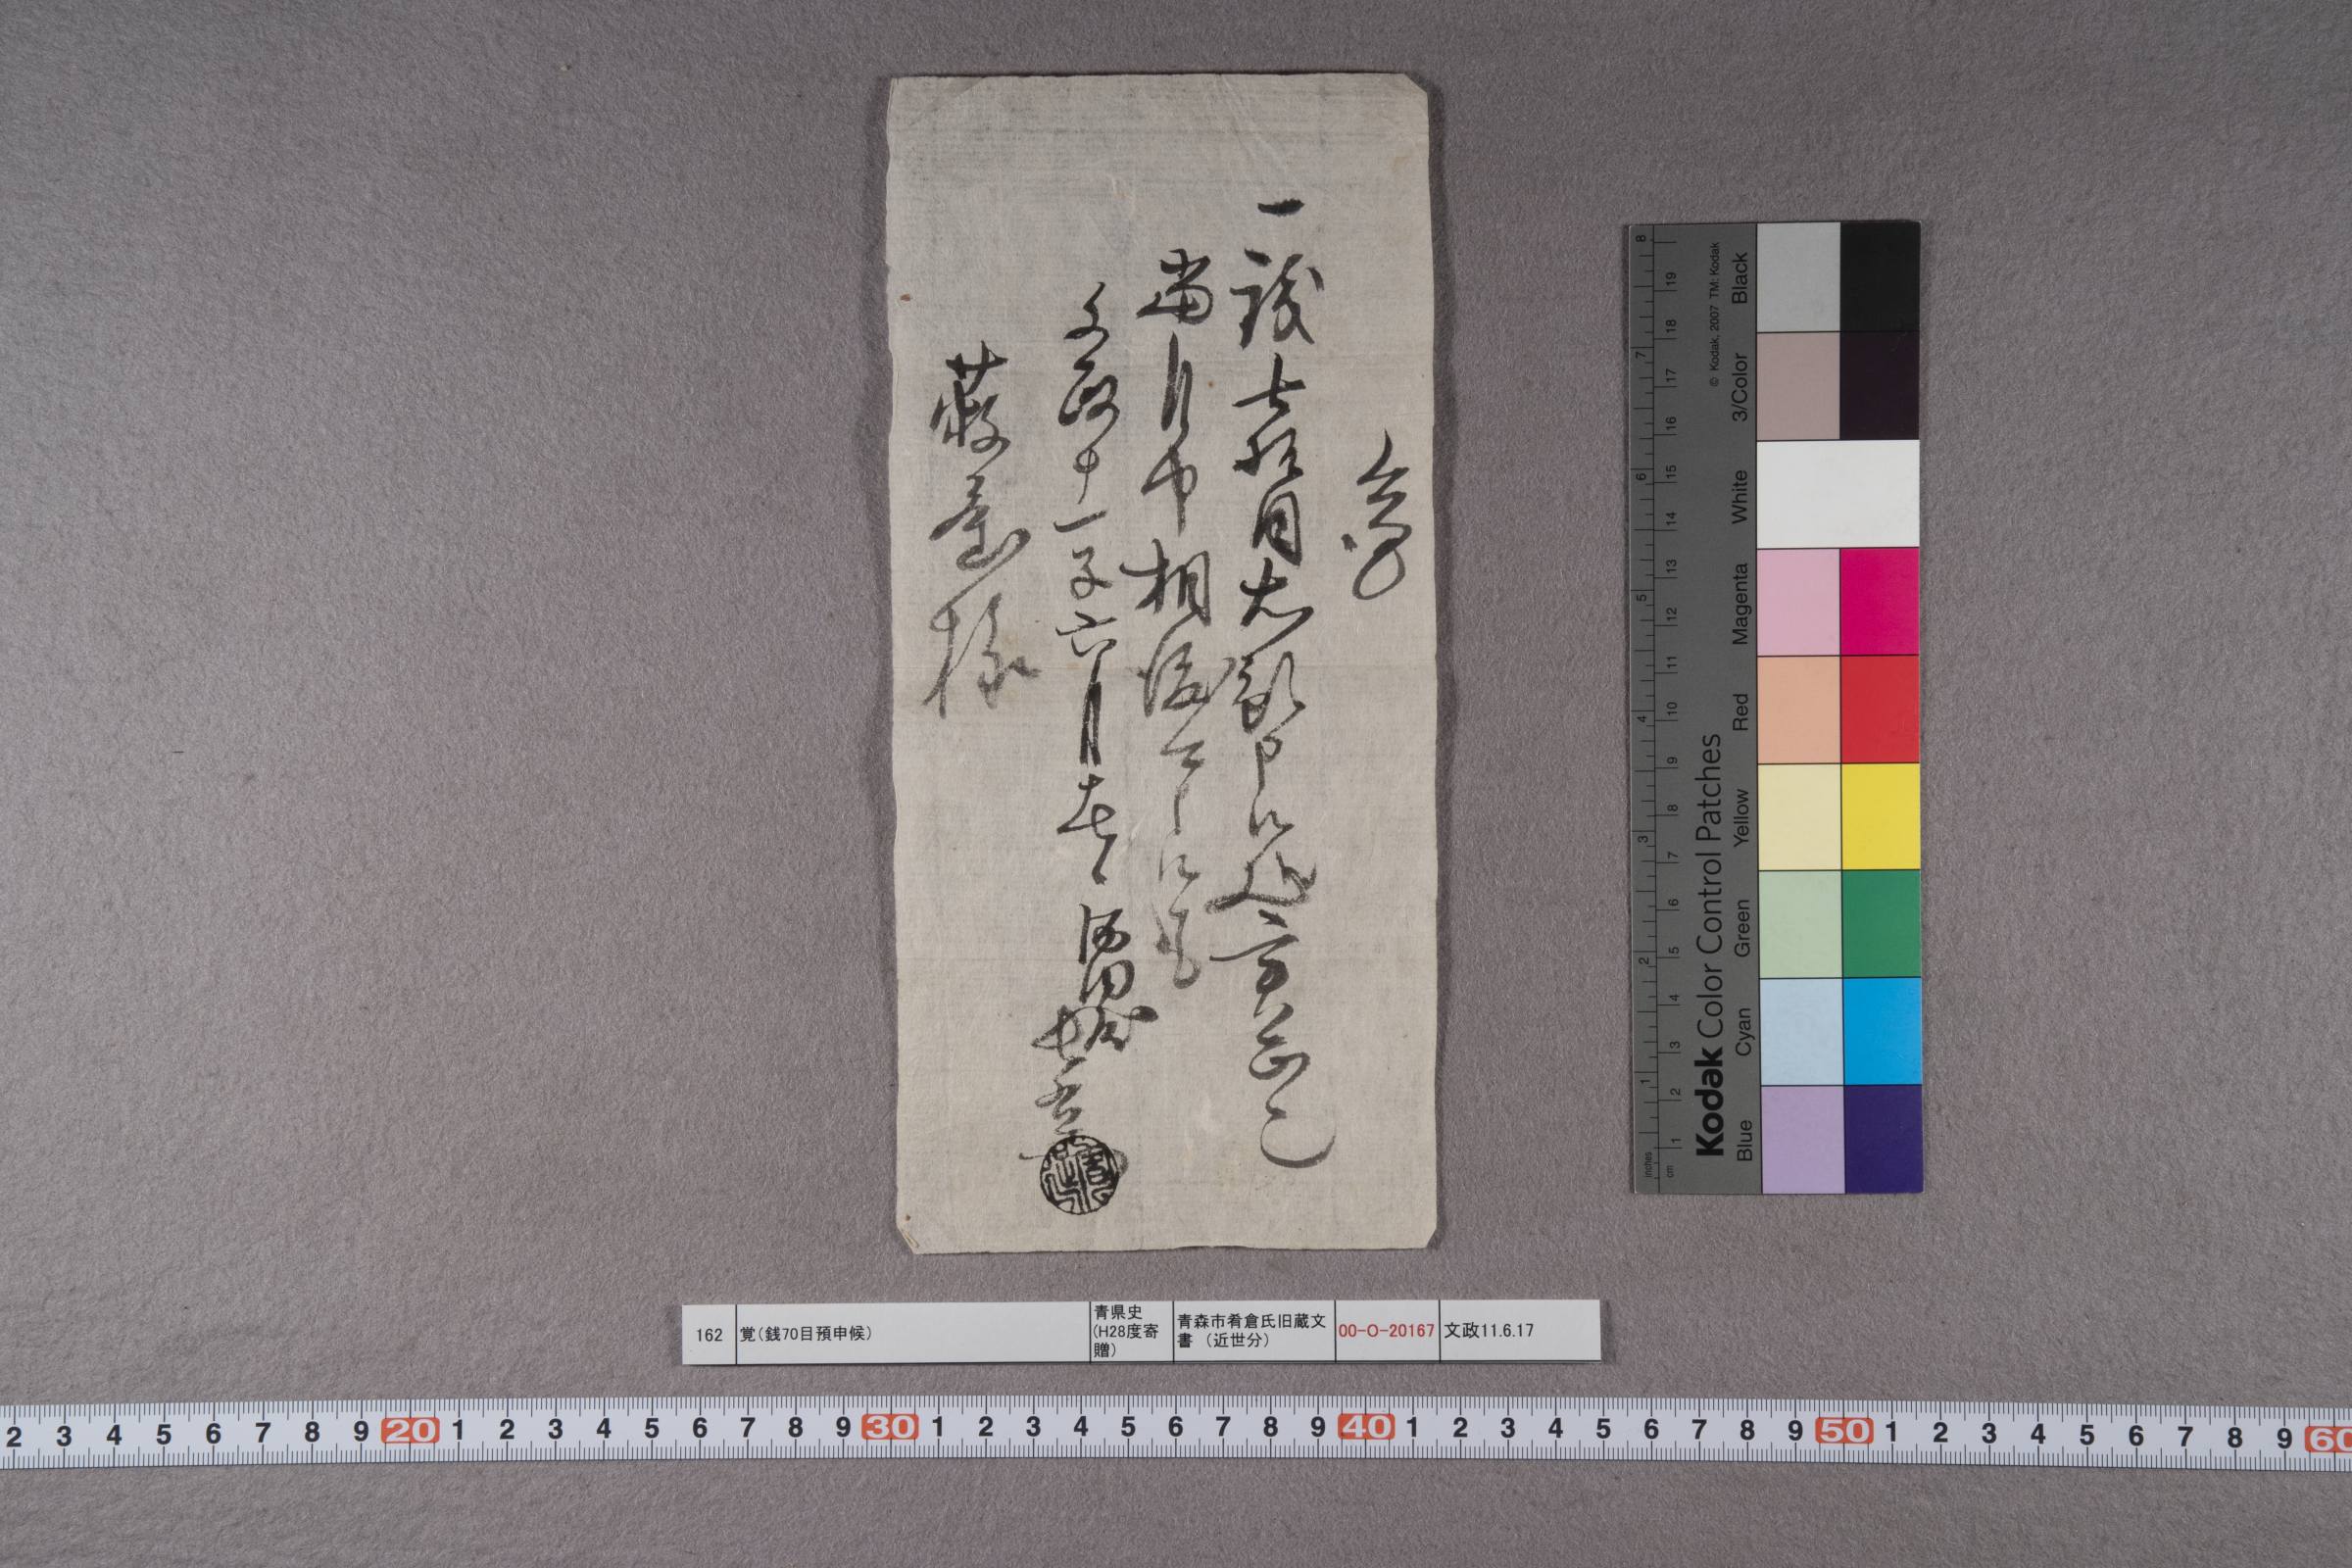 覚
一銭七拾目右預申候処実正也
当月中相渡可申候以上
文政十一子六月十七日
様
162
覚(銭70目預申候)
青県史
(H28度寄
贈)
青森市肴倉氏旧蔵文
書 (近世分)
00-O-20167
文政11.6.17
Kodak Color Control Patches
© Kodak, 2007 TM: Kodak
Blue Cyan Green Yellow Red Magenta White 3/Color Black
inches 1 2 3 4 5 6 7 8
cm 1 2 3 4 5 6 7 8 9 10 11 12 13 14 15 16 17 18 19
2 3 4 5 6 7 8 9 20 1 2 3 4 5 6 7 8 9 30 1 2 3 4 5 6 7 8 9 40 1 2 3 4 5 6 7 8 9 50 1 2 3 4 5 6 7 8 9 60